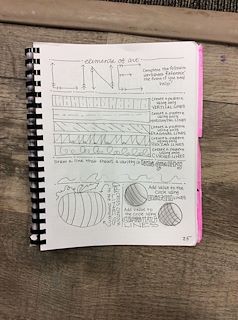 elements of art
Complete the following
worksheet. Reference
the front if you need
help!
Create a pattern
using only
VERTICAL LINES
Create a pattern
using only
HORIZONTAL LINES
Create a pattern
using only
DIAGONAL LINES
Create a pattern
using only
ZIGZAG LINES
Create a pattern
using only
CURVED LINES
Draw a line that shows a variety in line quality
Add value to the
circle using
LINES
Add value to the
circle using
LINES
25